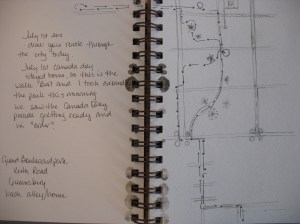 July 1st 2011
draw your route through
the city today.
July 1st Canada day
stayed home, so this is the
walk Bart and I took around
the park this morning
We saw the Canada Day
parade getting ready and
in "order"
Grand Boulevard park
Keith Road
Queensbury
back alley/home